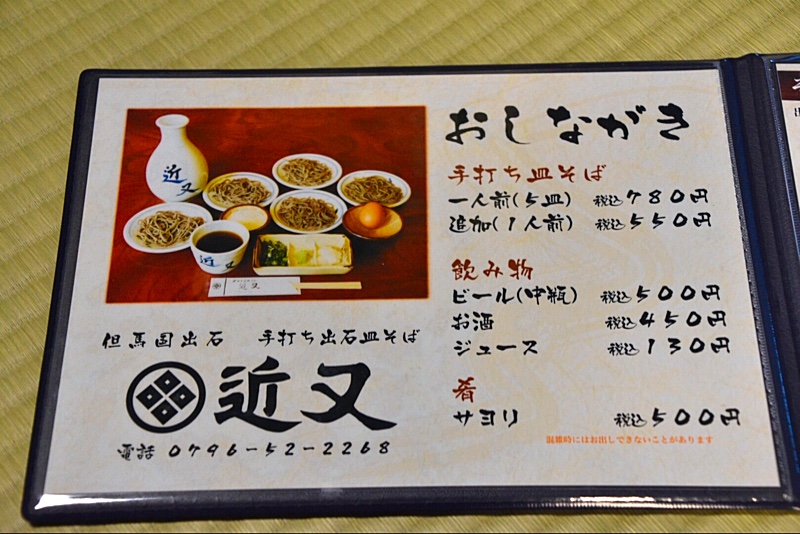 おしながき
手打ち皿そば
一人前(5皿) 税込780円
追加(1人前) 税込550円
飲み物
ビール(中瓶) 税込500円
お酒 税込450円
ジュース 税込130円
肴
サヨリ 税込500円
混雑時にはお出しできないことがあります
近又
近又
近又
但馬国出石 手打ち出石皿そば
近又
電話 0796-52-2268